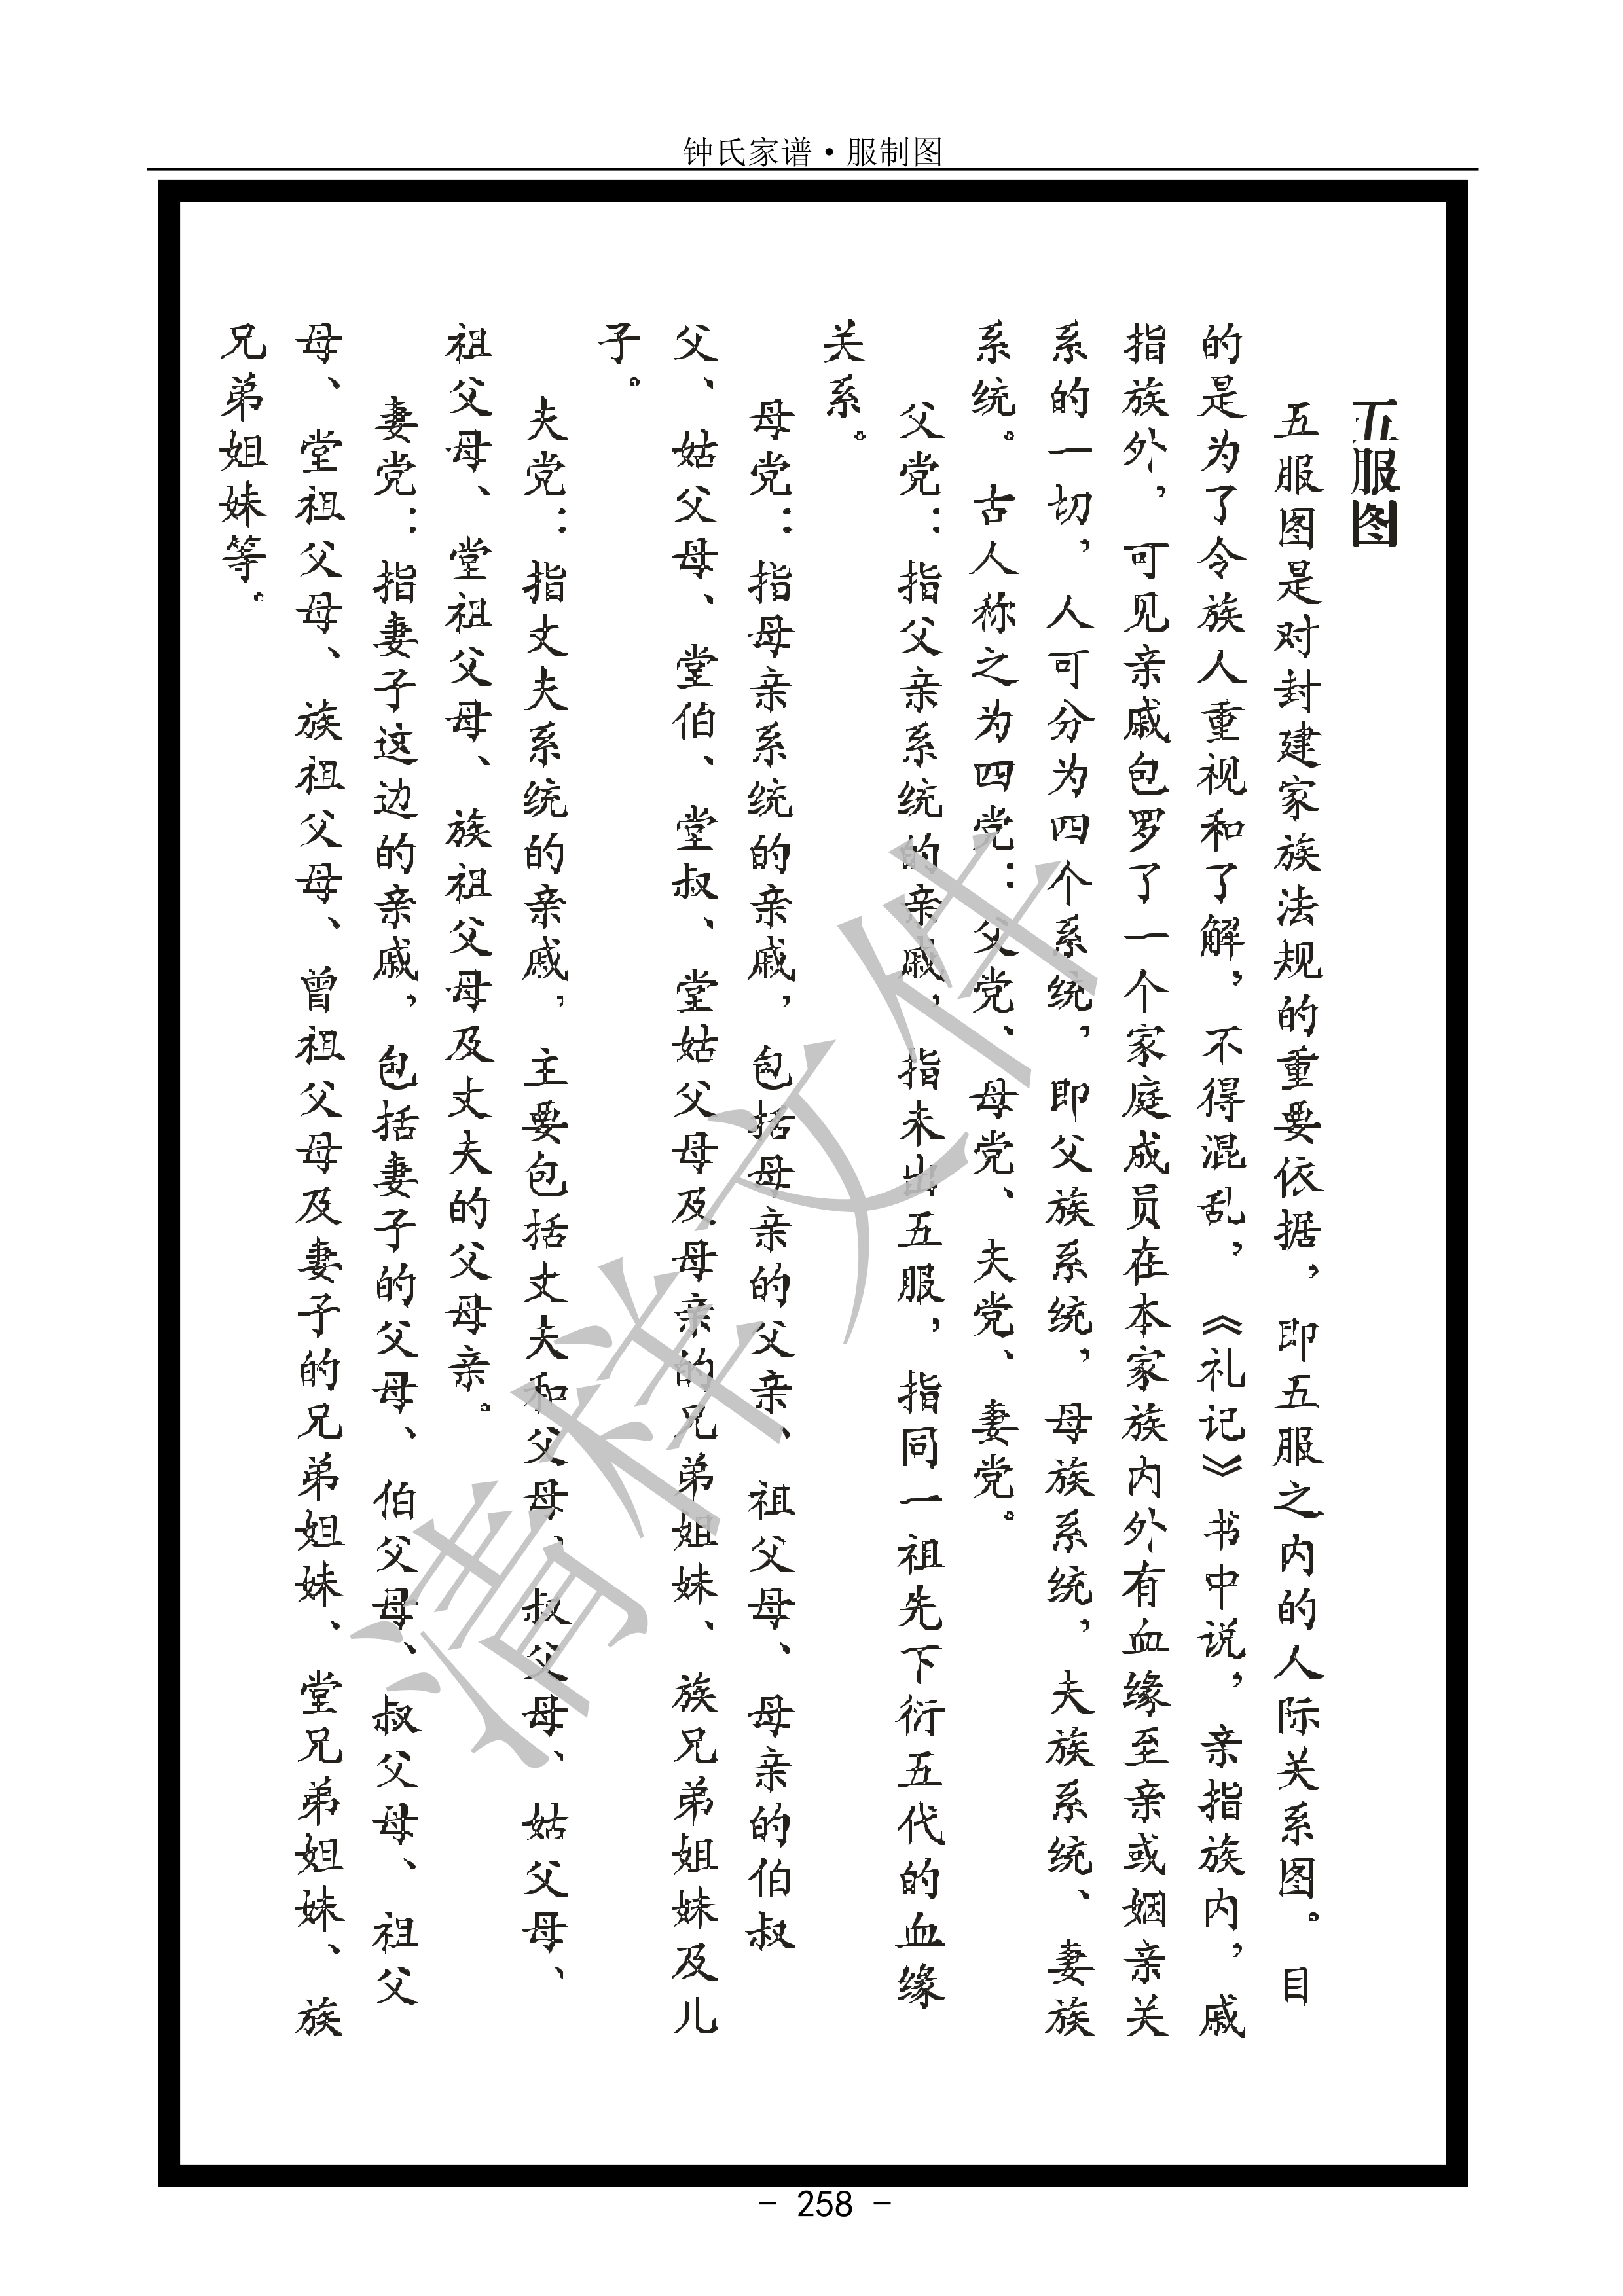 钟氏家谱·服制图
五服图
五服图是对封建家族法规的重要依据，即五服之内的人际关系图。目
的是为了令族人重视和了解，不得混乱，《礼记》书中说，亲指族内，戚
指族外，可见亲戚包罗了一个家庭成员在本家族内外有血缘至亲或姻亲关
系的一切，人可分为四个系统，即父族系统，母族系统，夫族系统、妻族
系统。古人称之为四党：父党、母党、夫党、妻党。
父党：指父亲系统的亲戚，指未出五服，指同一祖先下衍五代的血缘
关系。
母党：指母亲系统的亲戚，包括母亲的父亲、祖父母、母亲的伯叔
父、姑父母、堂伯、堂叔、堂姑父母及母亲的兄弟姐妹、族兄弟姐妹及儿
子。
夫党：指丈夫系统的亲戚，主要包括丈夫和父母、叔父母、姑父母、
祖父母、堂祖父母、族祖父母及丈夫的父母亲。
妻党：指妻子这边的亲戚，包括妻子的父母、伯父母、叔父母、祖父
母、堂祖父母、族祖父母、曾祖父母及妻子的兄弟姐妹、堂兄弟姐妹、族
兄弟姐妹等。
清样文件
- 258 -